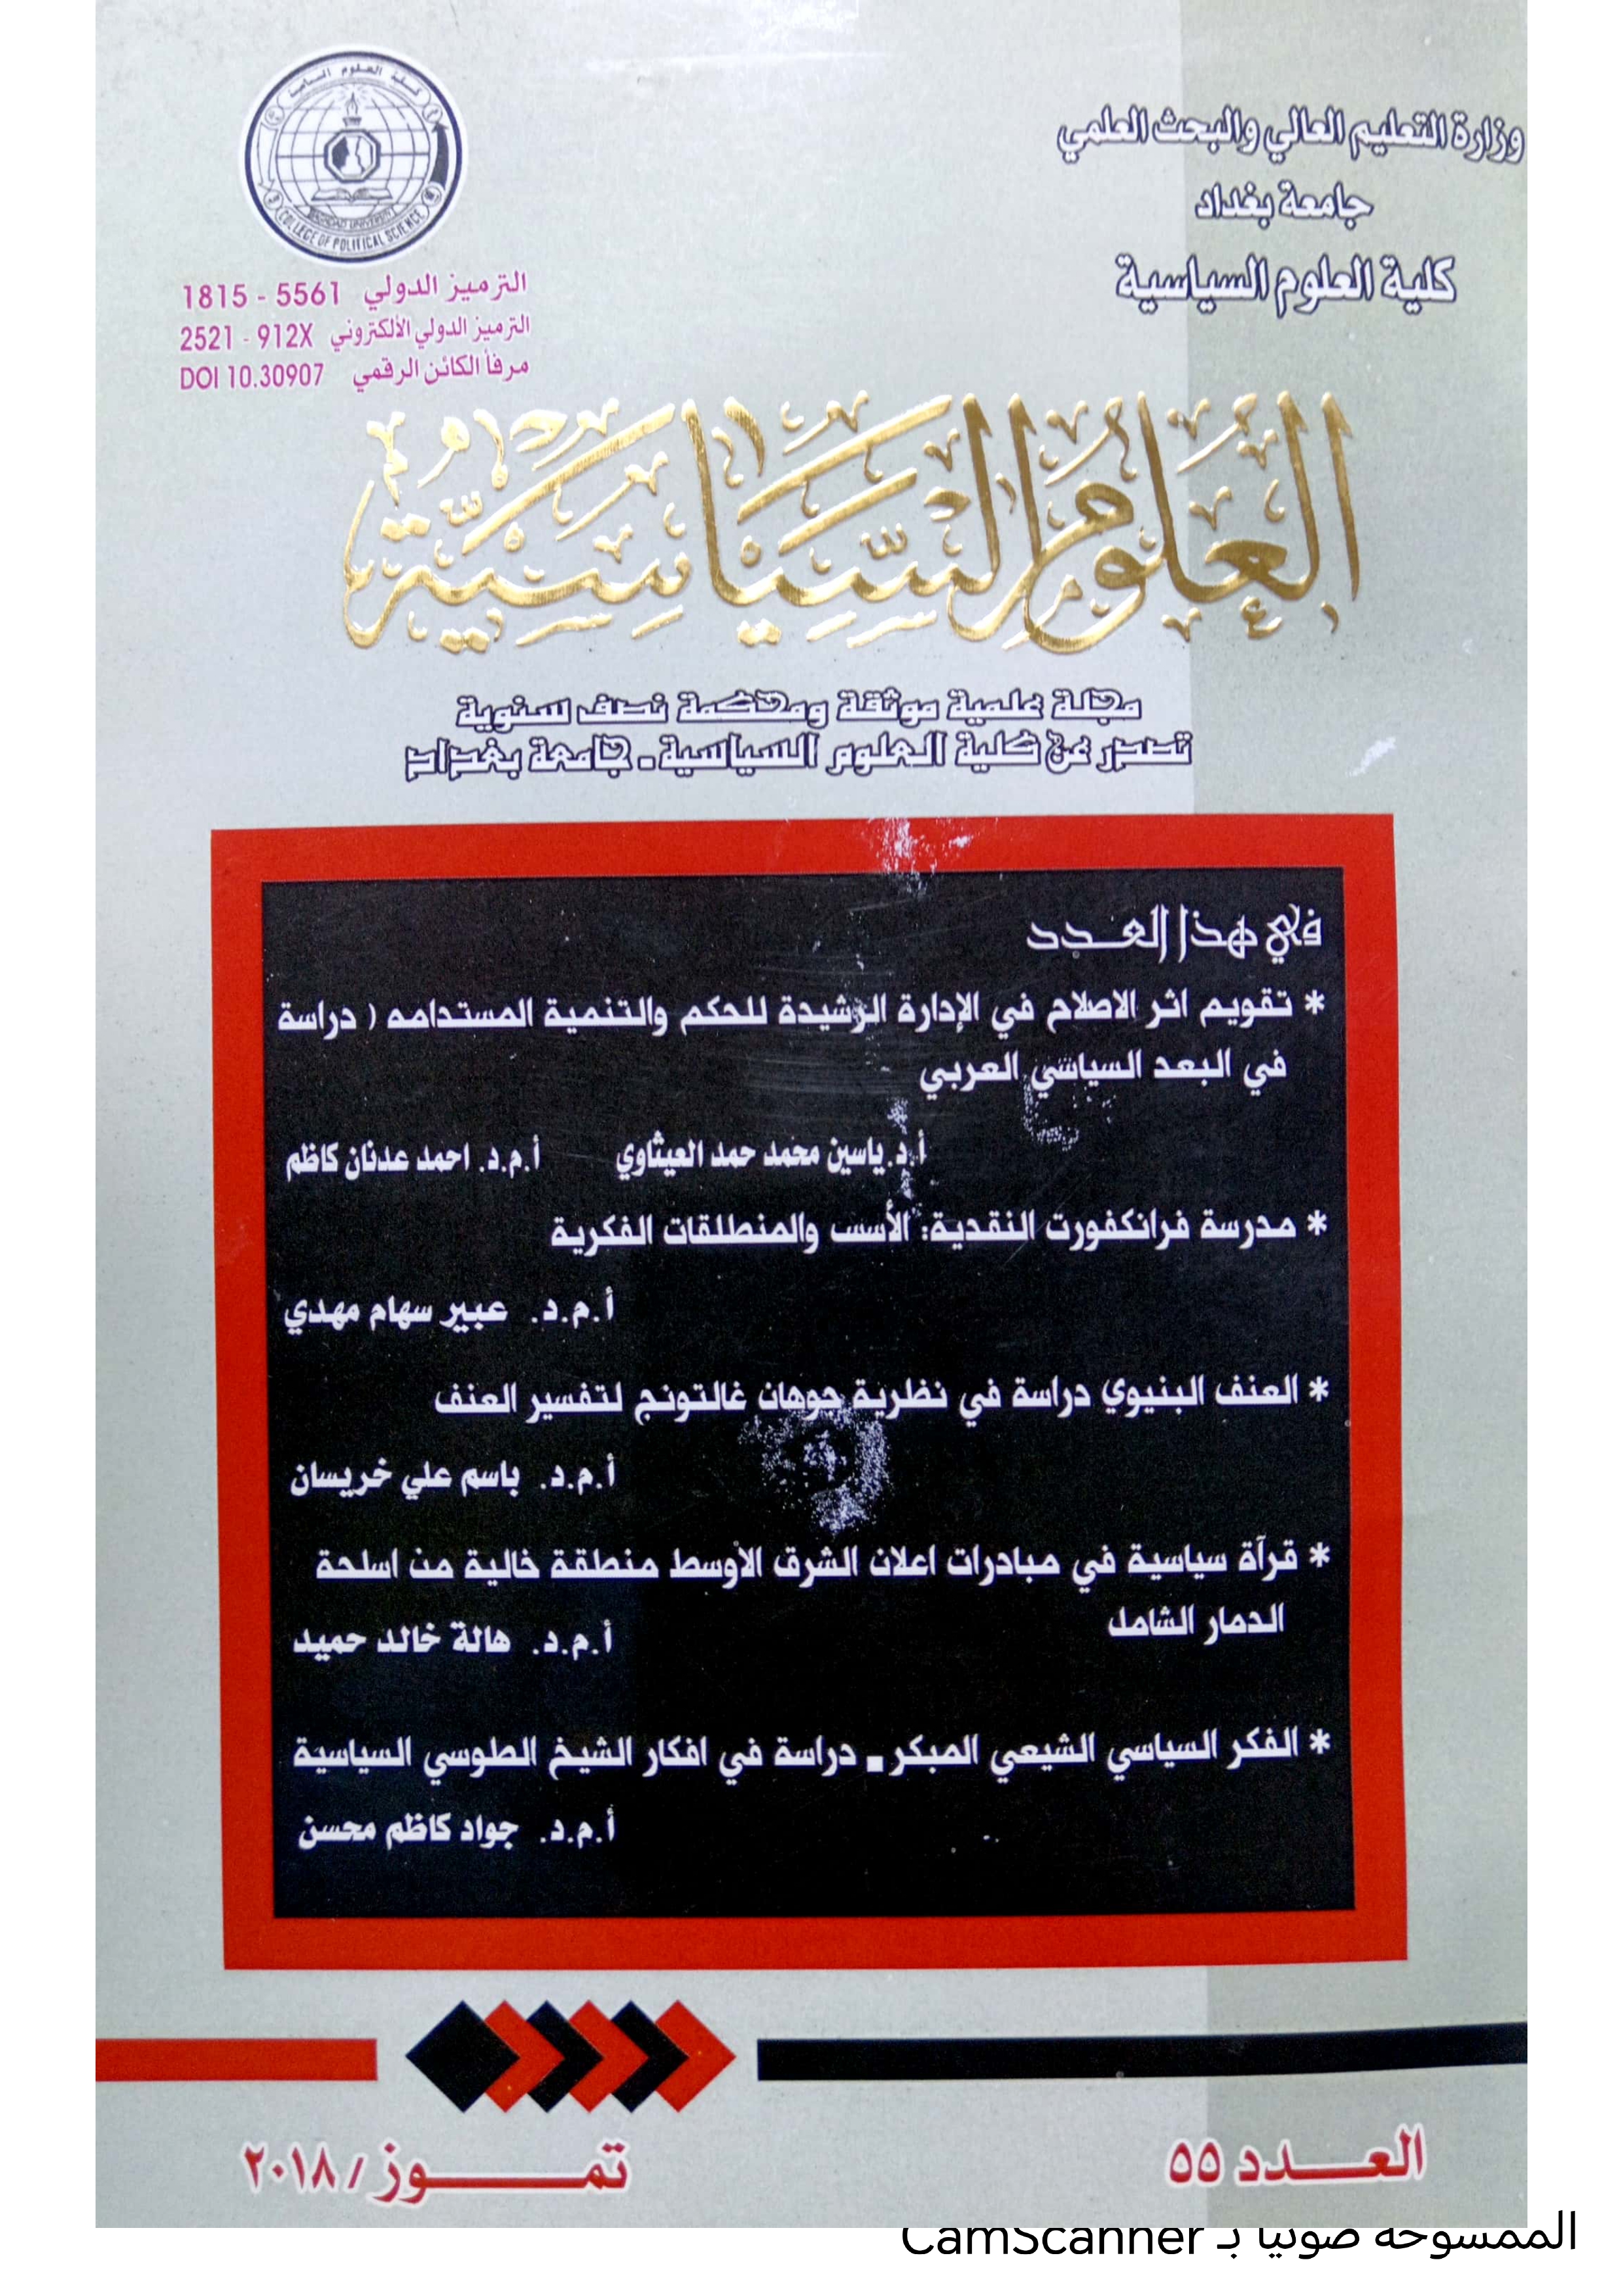 وزارة التعليم العالي والبحث العلمي
جامعة بغداد
كلية العلوم السياسية
كلية العلوم السياسية
BAGHDAD UNIVERSITY
COLLEGE OF POLITICAL SCIENCE
الترميز الدولي 5561 - 1815
الترميز الدولي الألكتروني 2521 - 912X
مرفأ الكائن الرقمي DOI 10.30907
العلوم السياسية
مجلة علمية موثقة ومحكمة نصف سنوية
تصدر عن كلية العلوم السياسية - جامعة بغداد
في هذا العدد
* تقويم اثر الاصلاح في الإدارة الرشيدة للحكم والتنمية المستدامه ( دراسة
في البعد السياسي العربي
أ.د.ياسين محمد حمد العيثاوي أ.م.د. احمد عدنان كاظم
* مدرسة فرانكفورت النقدية: الأسس والمنطلقات الفكرية
أ.م.د. عبير سهام مهدي
* العنف البنيوي دراسة في نظرية جوهان غالتونج لتفسير العنف
أ.م.د. باسم علي خريسان
* قرآة سياسية في مبادرات اعلان الشرق الأوسط منطقة خالية من اسلحة
الدمار الشامل
أ.م.د. هالة خالد حميد
* الفكر السياسي الشيعي المبكر. دراسة في افكار الشيخ الطوسي السياسية
أ.م.د. جواد كاظم محسن
العـــدد ٥٥
تمـــــوز / ٢٠١٨
الممسوحة ضوئيا بـ CamScanner